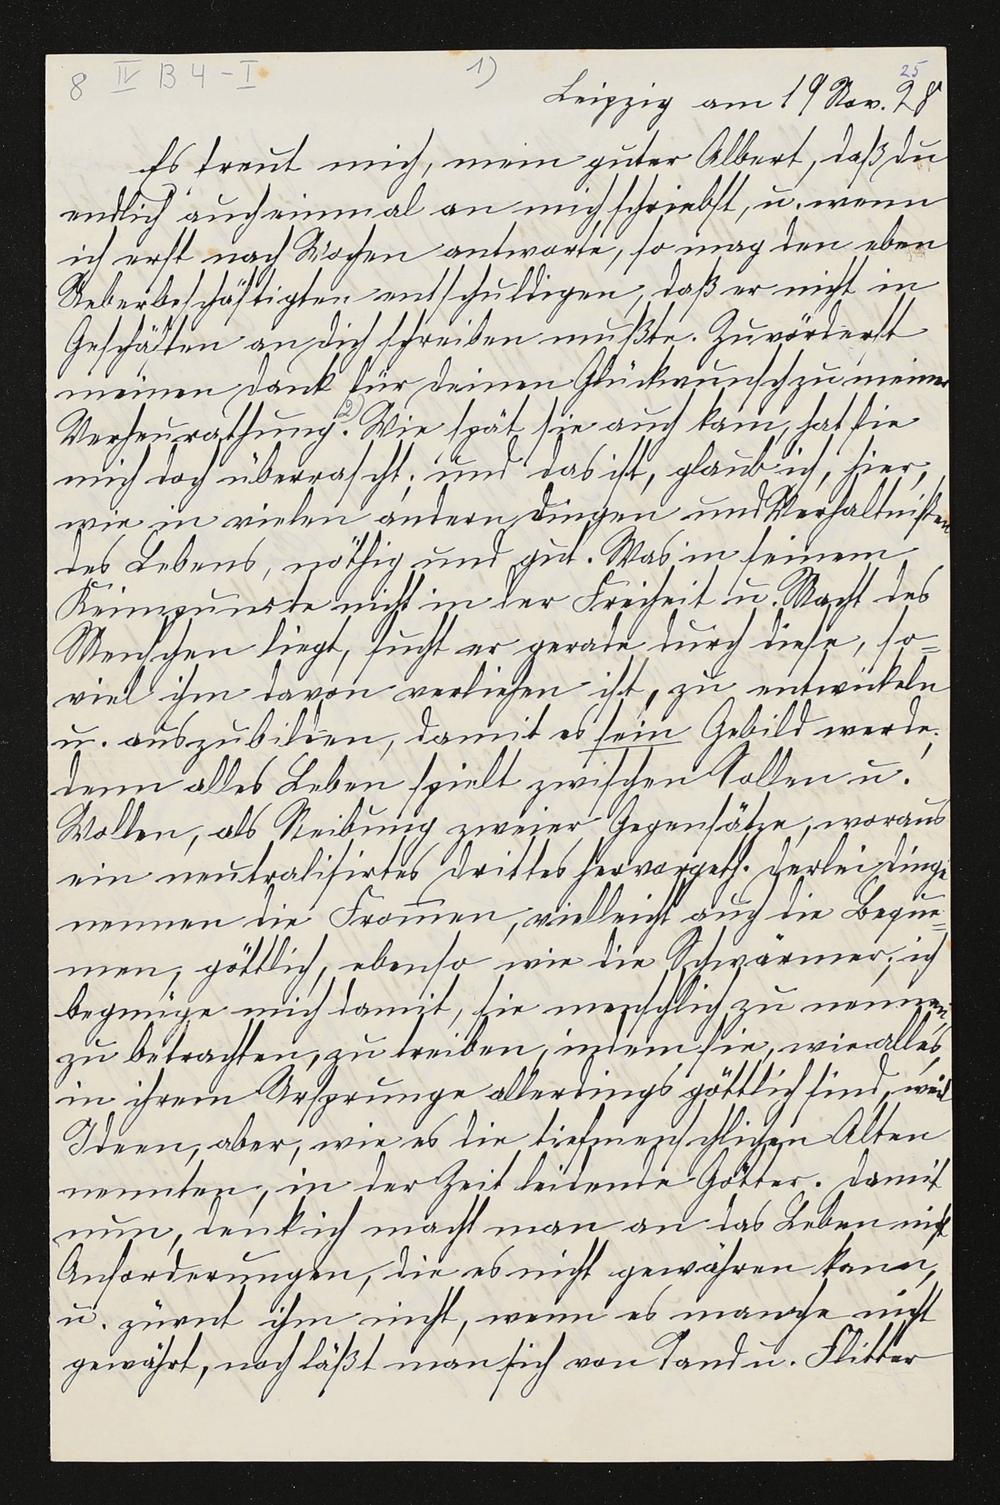 8 IV B 4 - I 1) 25
Leipzig am 19 Nov. 28
Es freut mich, mein guter Albert, daß du
endlich auch einmal an mich schriebst, u. wenn
ich erst nach Wochen antworte, so mag den eben
Ueberbeschäftigten entschuldigen, daß er nicht in
Geschäften an dich schreiben mußte. Zuvörderst
meinen Dank für deinen Glückwunsch zu meiner
Verheurathung.2) Wie spät sie auch kam, hat sie
mich doch überrascht; und das ist, glaub ich, hier,
wie in vielen andern Dingen und Verhältnissen
des Lebens, nöthig und gut. Was in seinem
Keimpunkte nicht in der Freiheit u. Macht des
Menschen liegt, sucht er gerade durch diese, so=
viel ihm davon verliehen ist, zu entwickeln
u. auszubilden, damit es sein Gebild werde;
denn alles Leben spielt zwischen Sollen u.
Wollen, als Reibung zweier Gegensätze, woraus
ein neutralisirtes Drittes hervorgeht. Derlei Dinge
nennen die Frommen, vielleicht auch die Beque=
men, göttlich, ebenso wie die Schwärmer; ich
begnüge mich damit, sie menschlich zu nennen,
zu betrachten, zu treiben, indem sie, wie alles,
in ihrem Ursprunge allerdings göttlich sind, weil
Ideen, aber, wie es die tiefmenschlichen Alten
nennten, in der Zeit leidende Götter. Damit
nun, denk ich macht man an das Leben nicht
Anforderungen, die es nicht gewähren kann,
u. zürnt ihm nicht, wenn es manche nicht
gewährt, noch läßt man sich von Tand u. Flitter